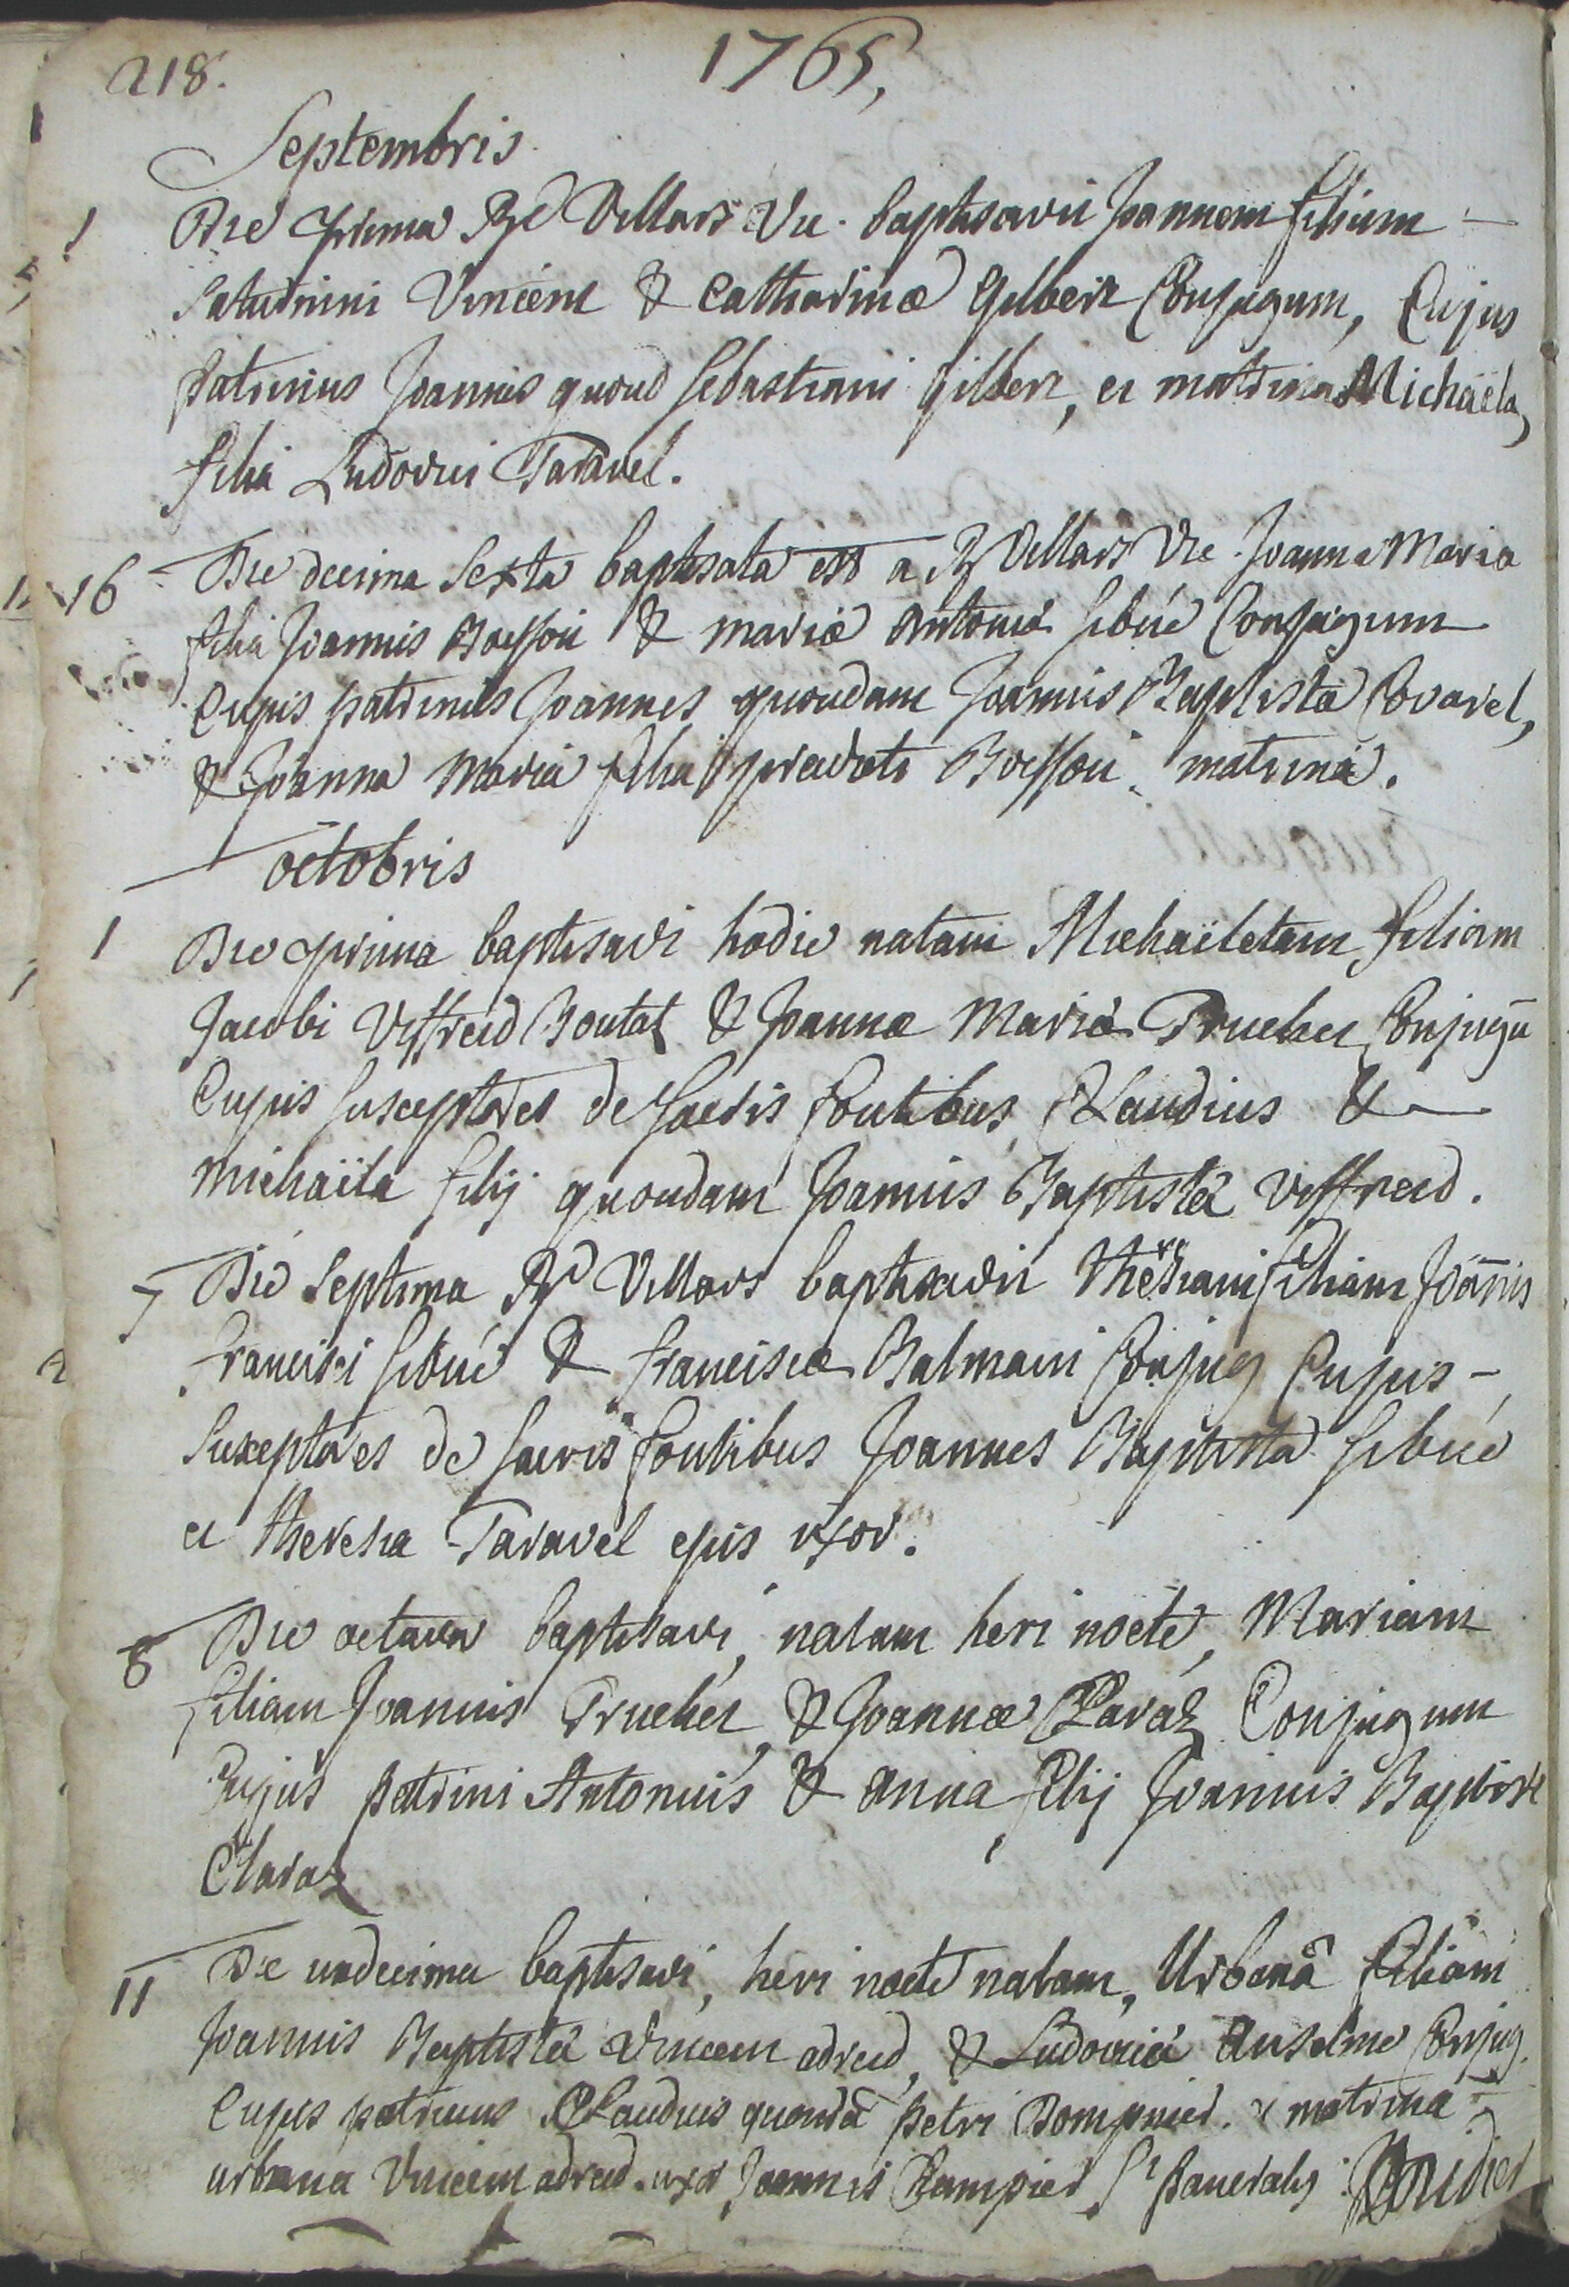 218.
1765,
Septembris
1 Die prima Rd Villars Vic. baptisavit Joannem filium
Saturnini Vincent & Catharinæ Gilbert Conjugum, Cujus
patrinus Joannes quond Sebastiani Gilbert, et matrina Michaëla,
filia Ludovici Taravel.
16 Die decima Sexta baptisata est a Rd Villars Vic. Joanna Maria
filia Joannis Boisson & mariæ Antoniæ Sibué Conjugum
Cujus patrinus Joannes quondam Joannis Baptistæ Covarel,
& Joanna Maria filia prædicti Boisson matrina.
octobris
1 Die prima baptisavi hodie natam Michaëletam, filiam
Jacobi Viffreid Boutat & Joannæ Mariæ Truchet Conjugũ
Cujus susceptores de sacris fontibus, Claudius &
michaëla filij quondam Joannis Baptistæ Viffreid.
7 Die Septima Rd Villars baptisavit theresiam filiam Joãnis
Francisci Sibué & franciscæ Balmain Conjug Cujus
Susceptores de Sacris fontibus Joannes Baptista Sibué
et theresia Taravel ejus uxor.
8 Die octava baptisavi, natam heri nocte, Mariam
filiam Joannis Truchet, & Joannæ Claraz Conjugum
Cujus patrini Antonius & Anna filij Joannis Baptistæ
Claraz
11 Die undecima baptisavi, heri nocte natam, Urbanã filiam
Joannis Baptistæ Vincent adreid, & Ludovicæ Anselme Conjug.
Cujus patrinus Claudius quondã petri Dompnier. & matrina
urbana Vincent adreid. uxor Joannis Rampier Sti pancratij.